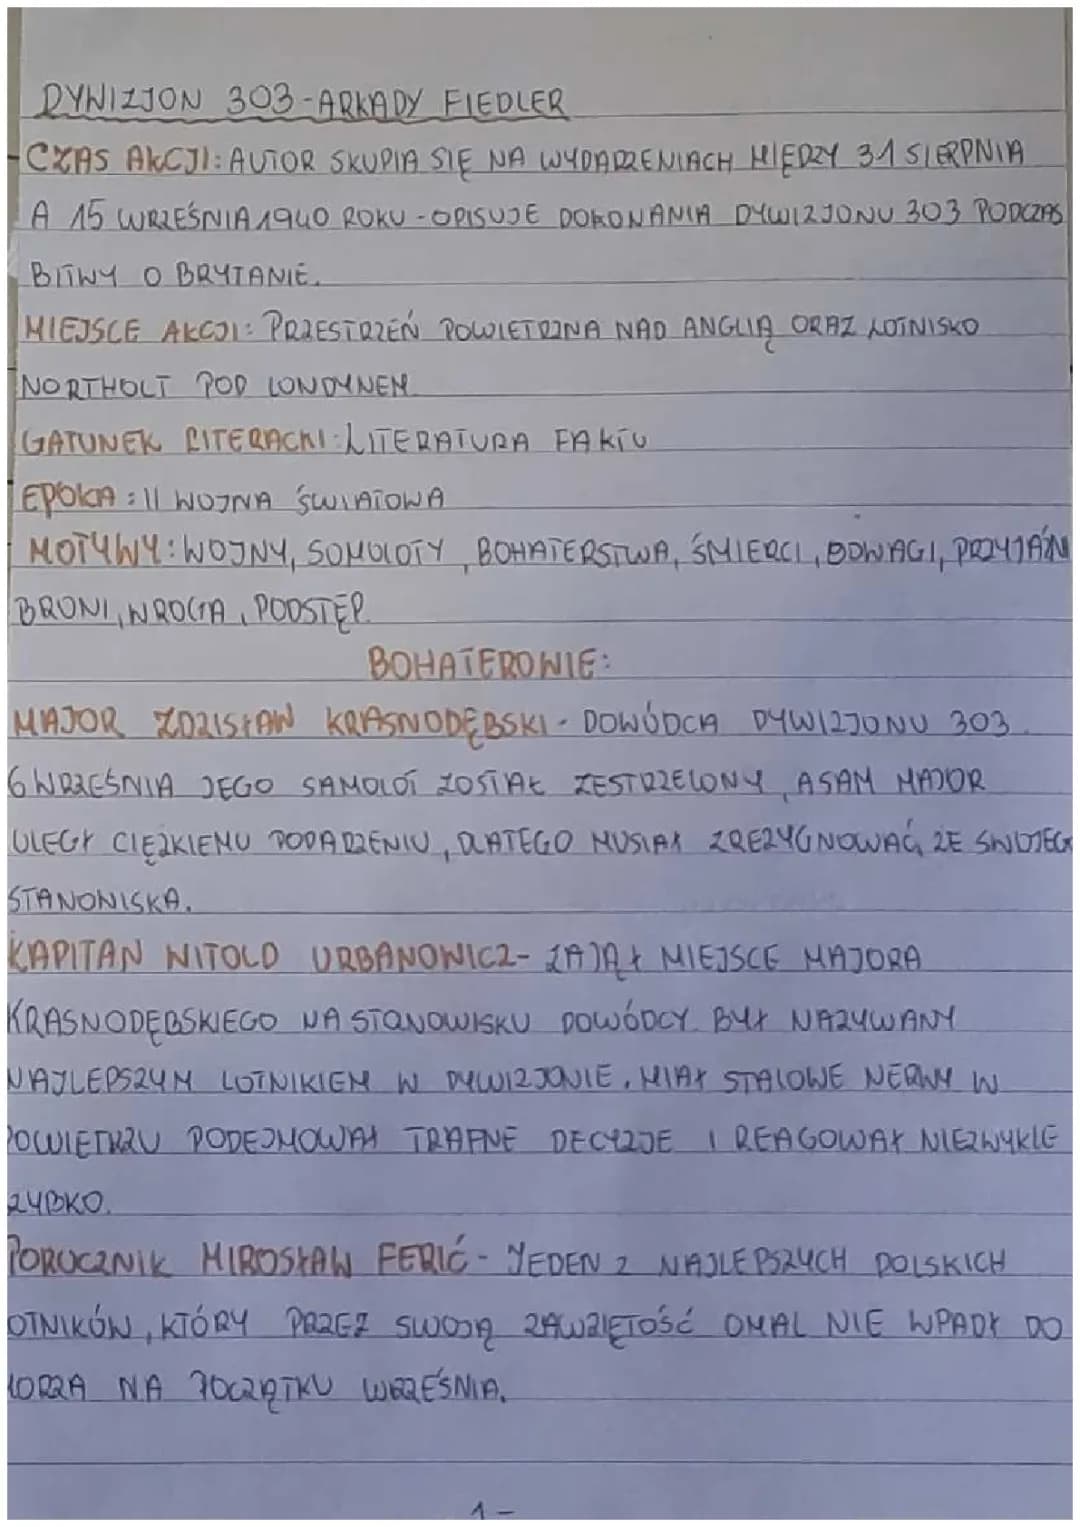 DYWIZJON 303 - ARKADY FIEDLER
CZAS AKCJI: AUTOR SKUPIA SIĘ NA WYDARZENIACH MIĘDZY 31 SIERPNIA
A 15 WRZEŚNIA 1940 ROKU - OPISUJE DOKONANIA DYWIZJONU 303 PODCZAS
BITWY O BRYTANIĘ.
MIEJSCE AKCJI: PRZESTRZEŃ POWIETRZNA NAD ANGLIĄ ORAZ LOTNISKO
NORTHOLT POD LONDYNEM
GATUNEK LITERACKI: LITERATURA FAKTU
EPOKA: II WOJNA ŚWIATOWA
MOTYWY: WOJNY, SOMOLOTY, BOHATERSTWA, ŚMIERCI, ODWAGI, PRZYJAŹŃ
BRONI, WROGA, PODSTĘP.
BOHATEROWIE:
MAJOR ZDZISŁAW KRASNODĘBSKI - DOWÓDCA DYWIZJONU 303.
6 WRZEŚNIA JEGO SAMOLOT ZOSTAŁ ZESTRZELONY, A SAM MAJOR
ULEGŁ CIĘŻKIEMU POPARZENIU, DLATEGO MUSIAŁ ZREZYGNOWAĆ ZE SWOJEG
STANOWISKA.
KAPITAN WITOLD URBANOWICZ - ZAJĄŁ MIEJSCE MAJORA
KRASNODĘBSKIEGO NA STANOWISKU DOWÓDCY. BYŁ NAZYWANY
NAJLEPSZYM LOTNIKIEM W DYWIZJONIE. MIAŁ STALOWE NERWY W
POWIETRZU PODEJMOWAŁ TRAFNE DECYZJE I REAGOWAŁ NIEZWYKLE
ZYBKO.
PORUCZNIK MIROSŁAW FERIĆ - JEDEN Z NAJLEPSZYCH POLSKICH
OTNIKÓW, KTÓRY PRZEZ SWOJĄ ZAWZIĘTOŚĆ OMAL NIE WPADŁ DO
MORZA NA POCZĄTKU WRZEŚNIA.
1 -